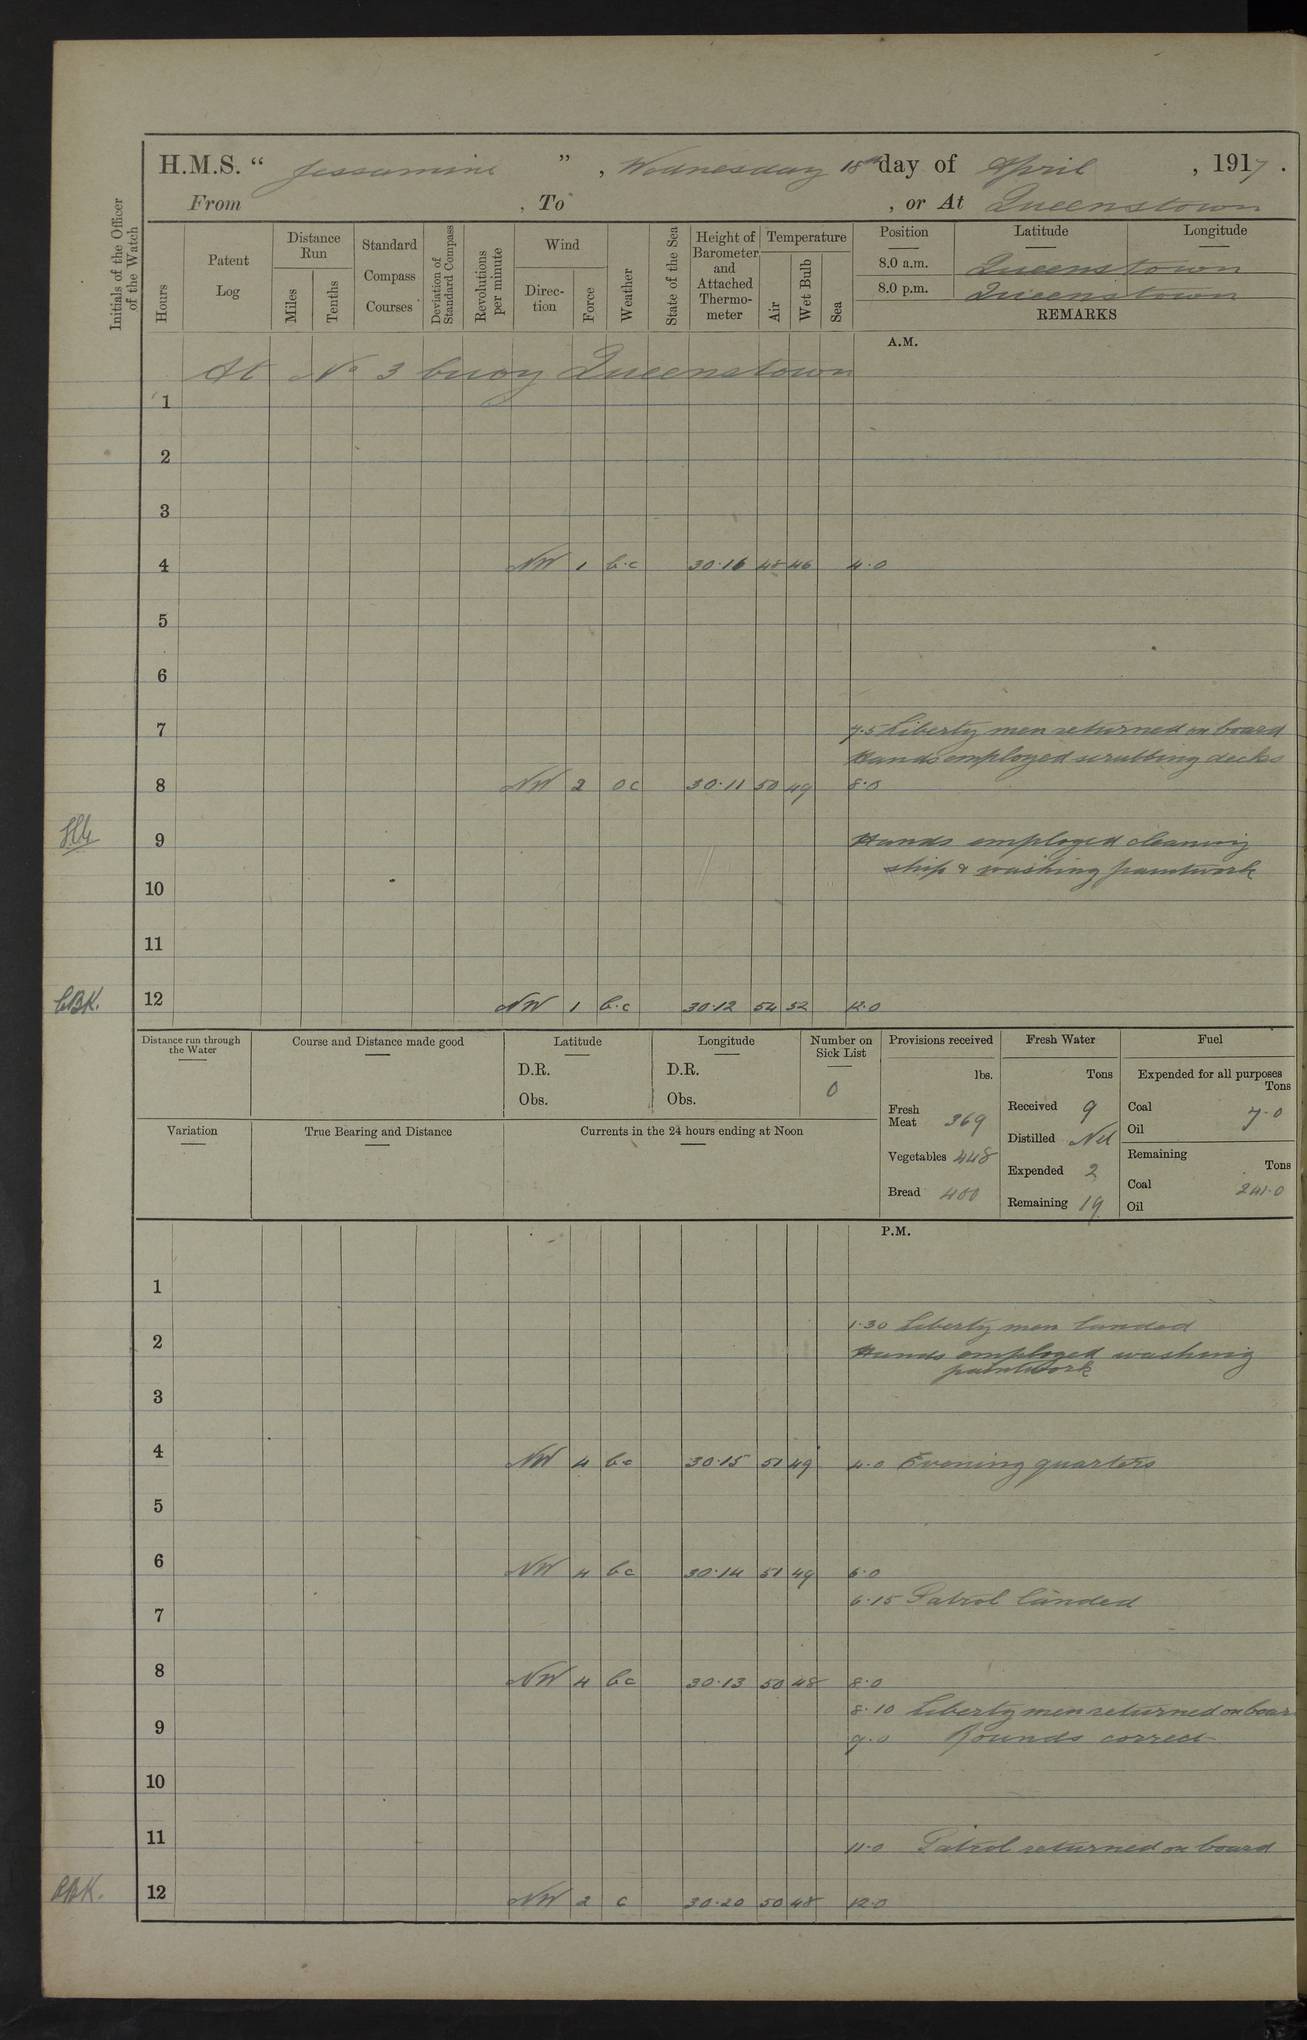 H.M.S. “ Jessamine ” , Wednesday 18th day of April , 1917 .
From , To , or At Queenstown
Initials of the Officer of the Watch
Hours
Patent Log
Distance Run
Miles
Tenths
Standard Compass Courses
Deviation of Standard Compass
Revolutions per minute
Wind
Direc-tion
Force
Weather
State of the Sea
Height of Barometer and Attached Thermo-meter
Temperature
Air
Wet Bulb
Sea
Position Latitude Longitude
8.0 a.m. Queenstown
8.0 p.m. Queenstown
REMARKS
A.M.
At No 3 buoy Queenstown
1
2
3
4 NW 1 b.c 30.16 48 46 4.0
5
6
7 7.5 Liberty men returned on board
Hands employed scrubbing decks
8 NW 2 oc 30.11 50 49 8.0
9 Hands employed cleaning
ship & washing paintwork
10
11
CBK. 12 NW 1 b.c 30.12 54 52 12.0
Distance run through the Water
Course and Distance made good
Latitude
D.R.
Obs.
Longitude
D.R.
Obs.
Number on Sick List
0
Provisions received
lbs.
Fresh Meat 369
Vegetables 448
Bread 400
Fresh Water
Tons
Received 9
Distilled Nil
Expended 2
Remaining 19
Fuel
Expended for all purposes
Tons
Coal 7.0
Oil
Remaining
Tons
Coal 241.0
Oil
Variation
True Bearing and Distance
Currents in the 24 hours ending at Noon
P.M.
1
1.30 Liberty men landed
2 Hands employed washing
paintwork
3
4 NW 4 bc 30.15 51 49 4.0 Evening quarters
5
6 NW 4 bc 30.14 51 49 6.0
6.15 Patrol landed
7
8 NW 4 bc 30.13 50 48 8.0
8.10 Liberty men returned on boar
9 9.0 Rounds correct
10
11 11.0 Patrol returned on board
CBK. 12 NW 2 c 30.20 50 48 12.0